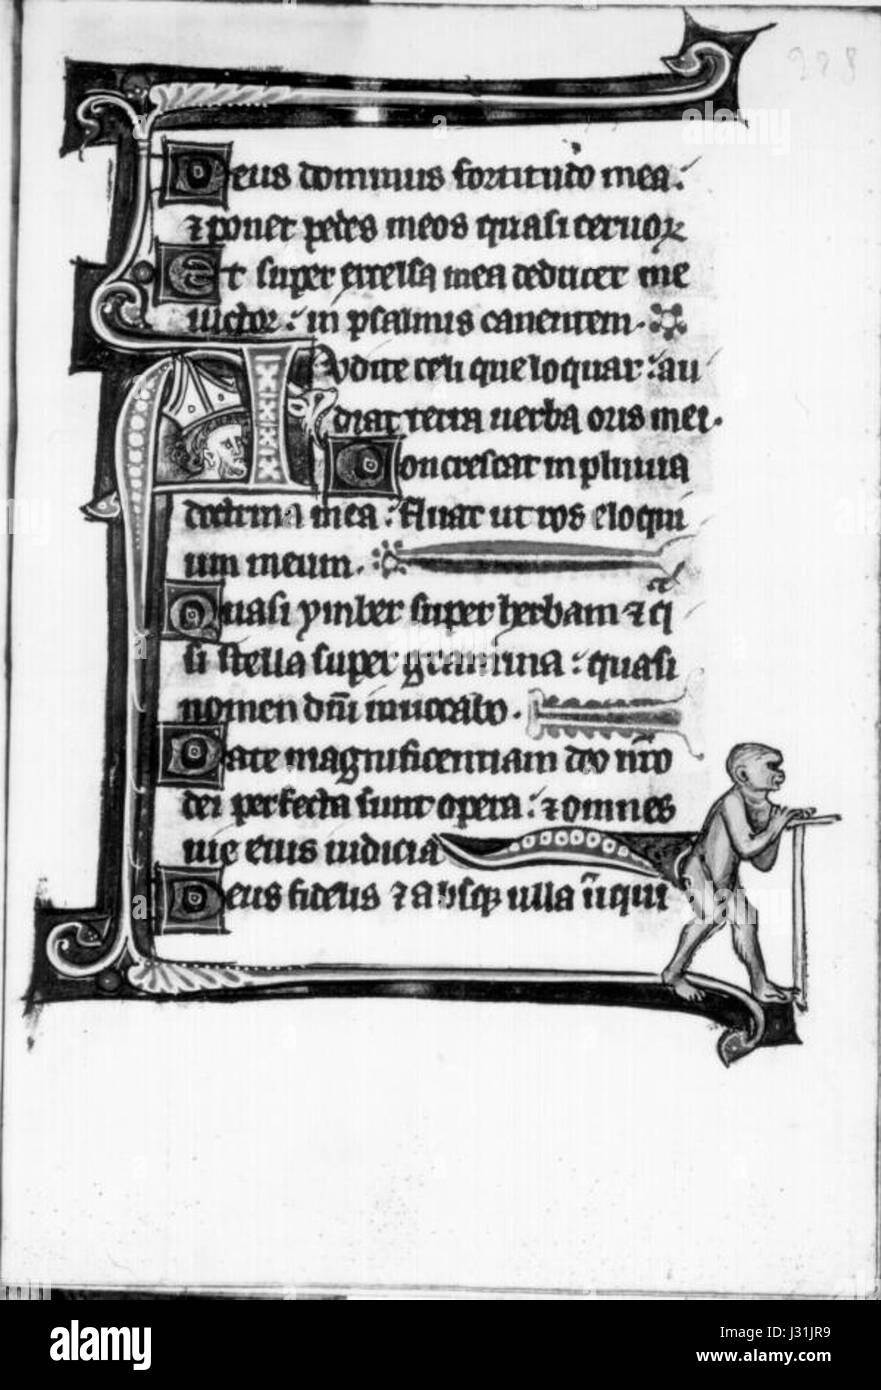 228
Deus dominus fortitudo mea:
⁊ ponet pedes meos quasi ceruoꝝ
Et super excelsa mea deducet me
uictor: in psalmis canentem.
Audite celi que loquar: au
diat terra uerba oris mei.
Concrescat in pluuia
doctrina mea: fluat ut ros eloqui
um meum.
Quasi ymber super herbam ⁊ q̄
si stella super gramina: quasi
nomen dn̄i inuocabo.
Date magnificentiam deo nr̄o
dei perfecta sunt opera: ⁊ omnes
uie eius iudicia
Deus fidelis ⁊ absqꝫ ulla iniqui
alamy
Image ID: J31JR9
www.alamy.com